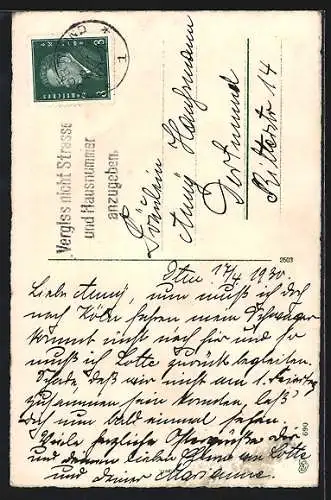 8
Deutsches Reich
1
Vergiss nicht Strasse
und Hausnummer
anzugeben.
Fräulein
Änny Hausmann
Dortmund
Ritterstr 14
2503
17/4 1930.
Liebe Änny, nun muß ich doch
nach Köln fahren mein Schwager
kommt nicht nach hier und so
muß ich Lotte zurück begleiten.
Schade, daß wir nicht am 1. Feiertag
zusammen sein konnten, laß
Dich nun bald einmal sehen.
Viele herzliche Ostergrüße Dir
und Deinen lieben Eltern von Lotte
und Deiner Marianne.
690